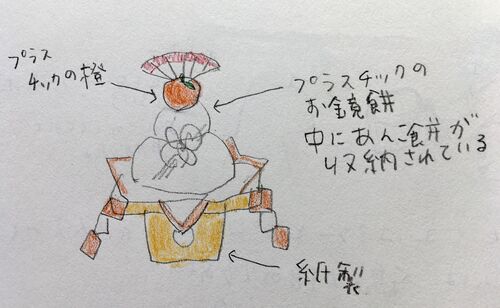 プラス
チックの橙
プラスチックの
お鏡餅
中にあんこ餅が
収納されている
紙製